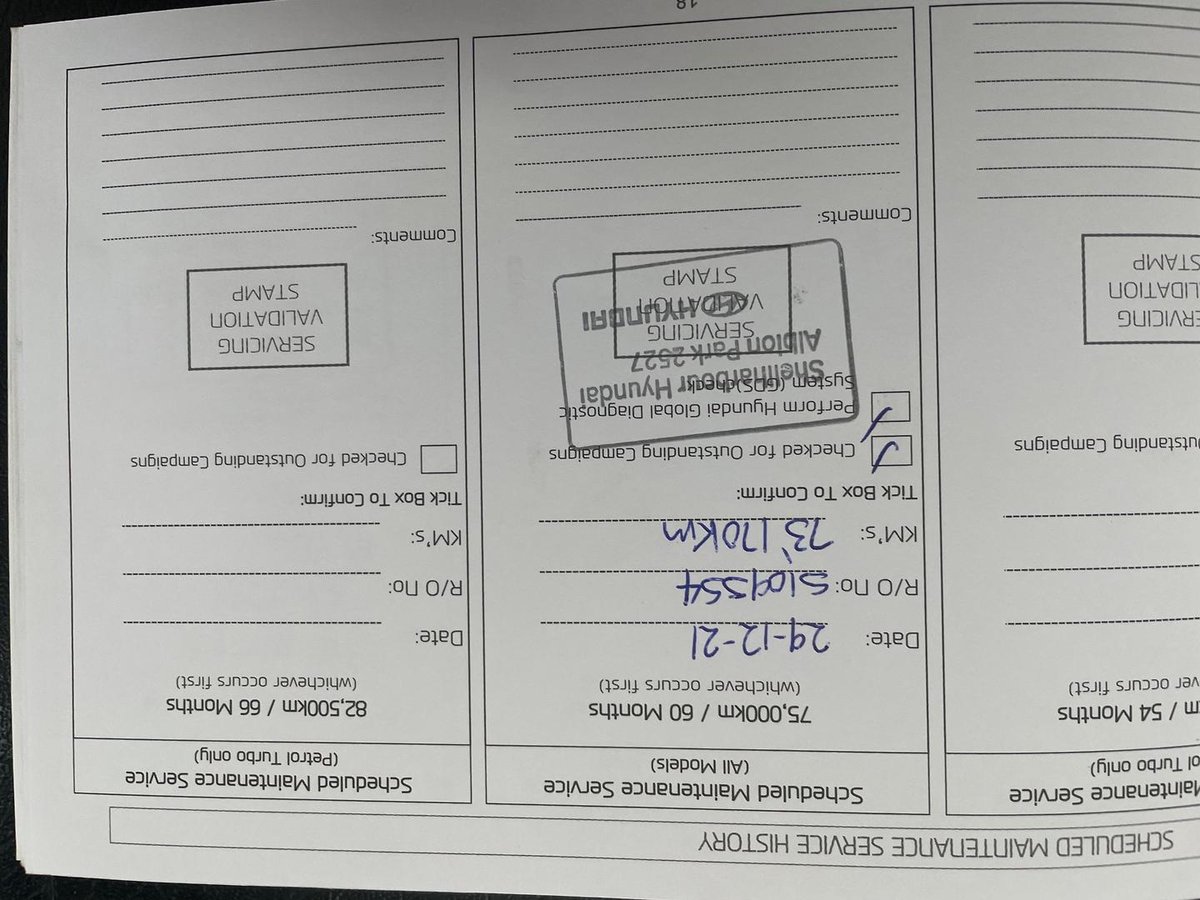 SCHEDULED MAINTENANCE SERVICE HISTORY
Maintenance Service
ol Turbo only)
m / 54 Months
ver occurs first)
utstanding Campaigns
SERVICING
LIDATION
STAMP
Scheduled Maintenance Service
(All Models)
75,000km / 60 Months
(whichever occurs first)
Date: 29-12-21
R/O no: S109554
KM's: 73'170Km
Tick Box To Confirm:
Checked for Outstanding Campaigns
Perform Hyundai Global Diagnostic
System (GDS)check
Shellharbour Hyundai
Albion Park 2527
HYUNDAI
SERVICING
VALIDATION
STAMP
Comments:
18
Scheduled Maintenance Service
(Petrol Turbo only)
82,500km / 66 Months
(whichever occurs first)
Date:
R/O no:
KM's:
Tick Box To Confirm:
Checked for Outstanding Campaigns
SERVICING
VALIDATION
STAMP
Comments: